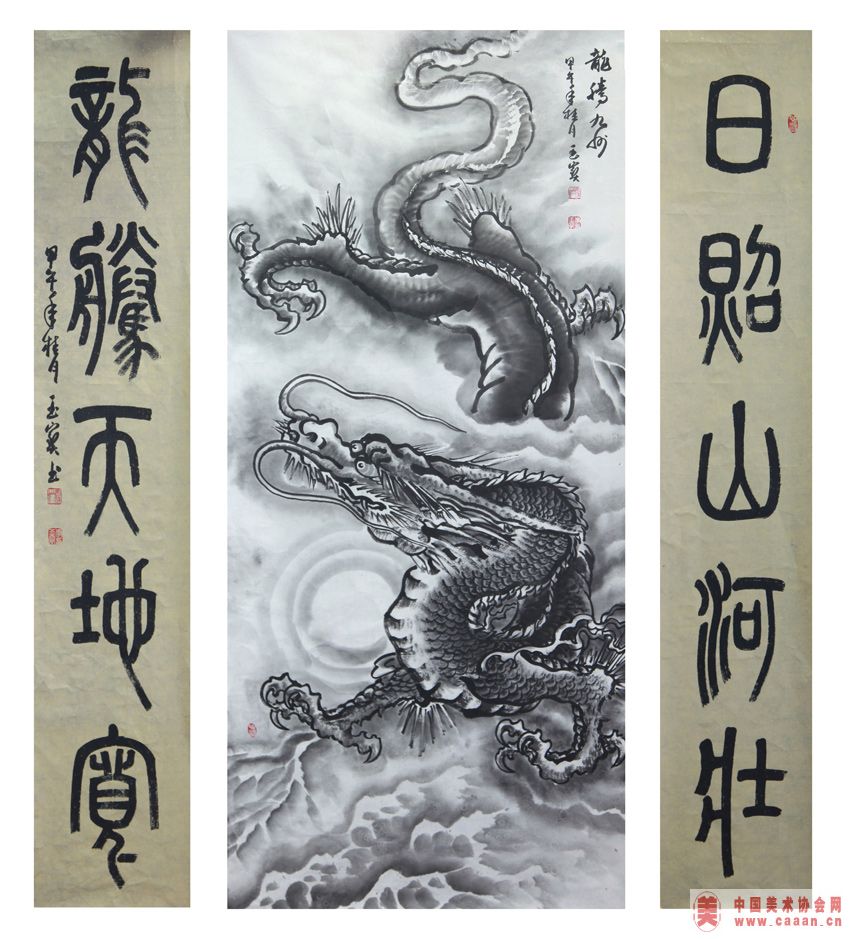 日照山河壯
龍騰九州
甲午年桂月玉
龍騰天地寬
甲午年桂月玉
中国美术协会网
www.caaan.cn